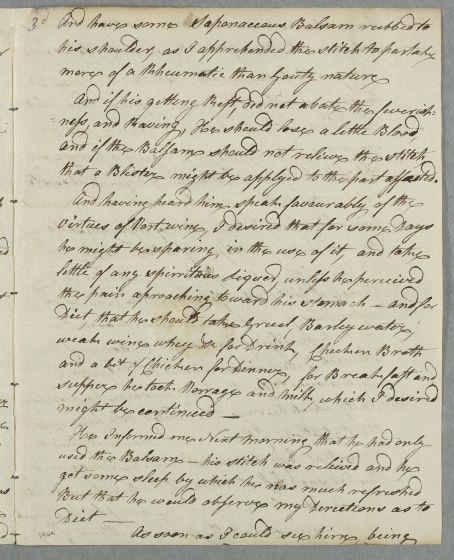 3d
And have some Saponaceous Balsam rubbed to
his shoulder, as I apprehended the stitch to partake
more of a Rheumatic than Gouty nature
And if his getting Rest, did not abate the feverish=
=ness, and Raving, He should lose a little Blood
And if the Balsam should not relieve the stitch
that a Blister might be applyed to the part affected.
And having heard him speak favourably of the
virtues of Port wine, I desired that for some Days
he might be sparing in the use of it, and take
little of any spirritous Liquor unless he perceived
the pain aproaching toward his stomach — and for
Diet, that he should take Gruel, Barley water,
weak wine whey &c for Drink, Chicken Broth
and a bit of Chicken for Dinner, for Breakfast and
supper he took Porrage and Milk, which I desired
might be continued —
He Informed me Next morning, that he had only
used the Balsam — his stitch was relieved and he
got some sleep by which he was much refreshed
But that he would observe my Directions as to
Diet —
As soon as I could see him, being